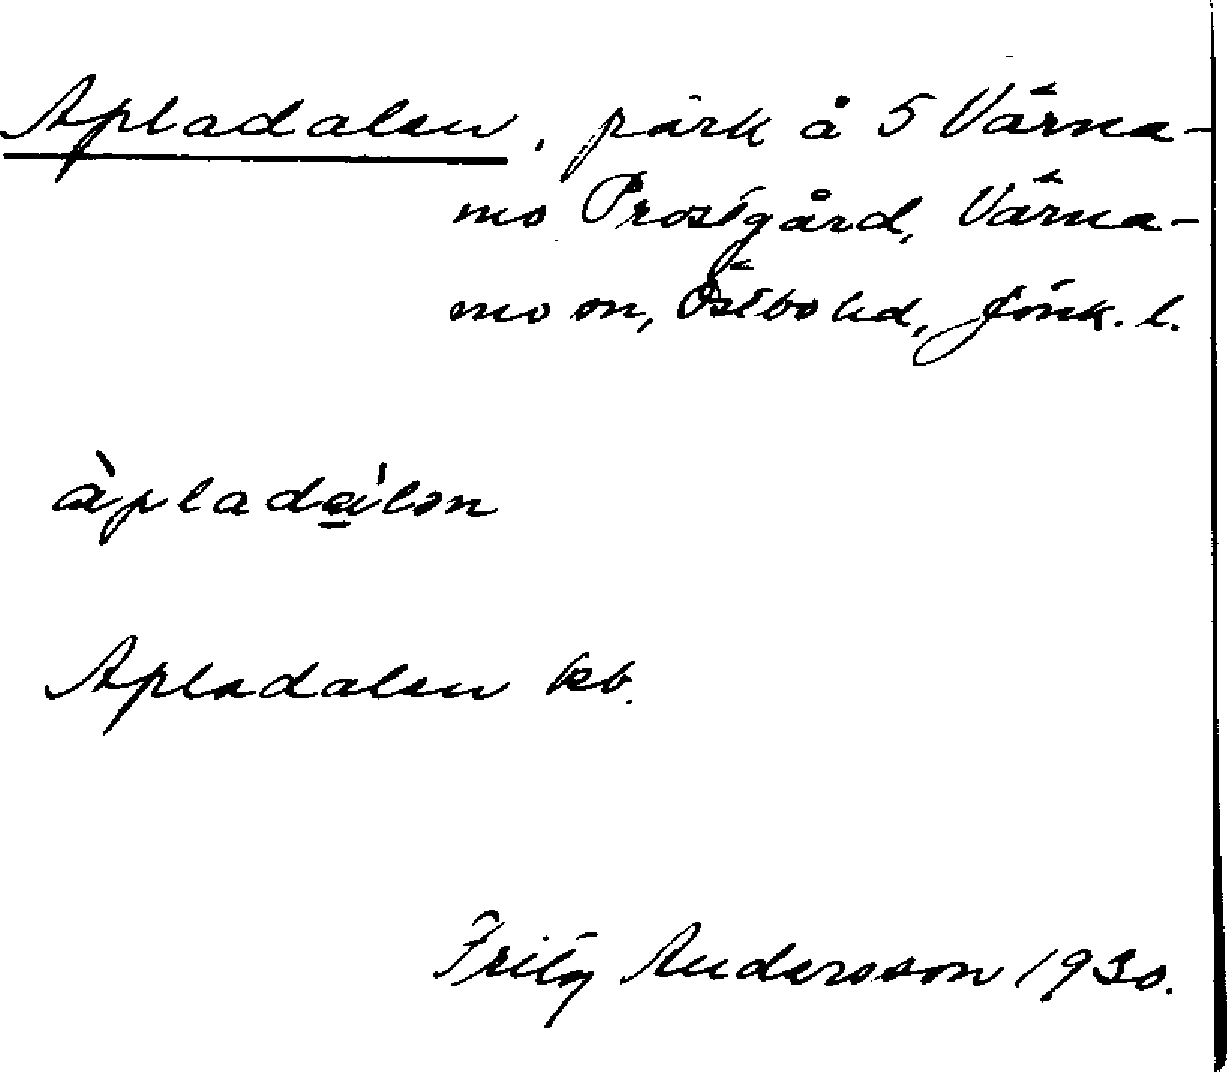 Apladalen, park å 5 Värna-
mo Prostgård, Värna-
mo sn, Östbo hd, Jönk. l.
àpladálən
Apladalen kb.
Fritz Andersson 1930.